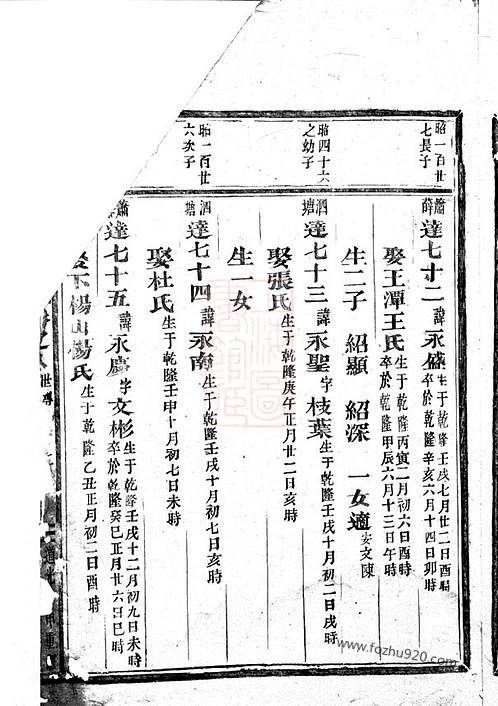 昭一百廿七長子
蕭薛達七十二諱永盛生于乾隆壬戌七月廿二日酉時卒於乾隆辛亥六月十四日卯時
娶王潭王氏生于乾隆丙寅二月初六日酉時卒於乾隆甲辰六月十三日午時
生二子 紹顯 紹深 一女適安文陳
昭四十六之幼子
泗塘達七十三諱永聖字枝葉生于乾隆壬戌十月初二日戌時
娶張氏生于乾隆庚午正月廿二日亥時
生一女
昭一百廿六次子
泗塘達七十四諱永南生于乾隆壬戌十月初七日亥時
娶杜氏生于乾隆壬申十月初七日未時
蕭達七十五諱永慮字文彬生于乾隆壬戌十二月初九日未時卒於乾隆癸巳正月廿六日巳時
楊氏生于乾隆乙丑正月初二日酉時
世
www.fozhu920.com